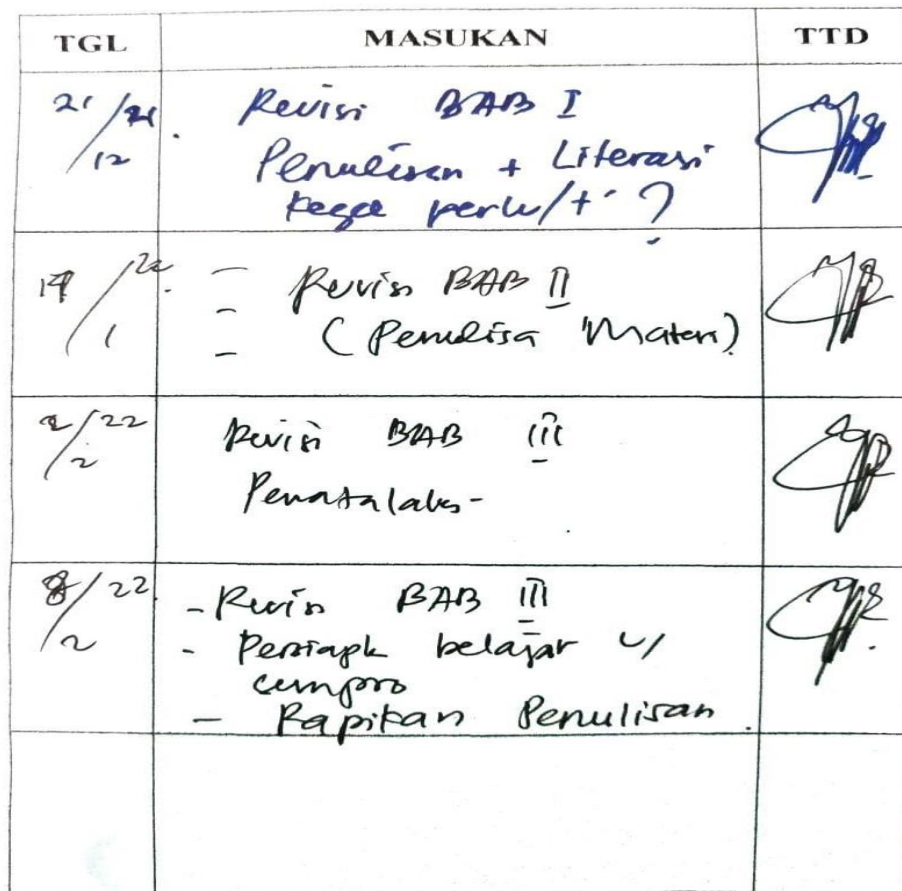 TGL MASUKAN TTD
21/21 12 Revisi BAB I
Penulisan + Literasi
perlu/+ ?
/22 1 - Revisi BAB II
- (Penulisa Materi)
-
2/22 2 Revisi BAB III
Penatalaks-
8/22 2 - Revisi BAB III
- Persiapk belajar u/
sempro
- Rapikan Penulisan